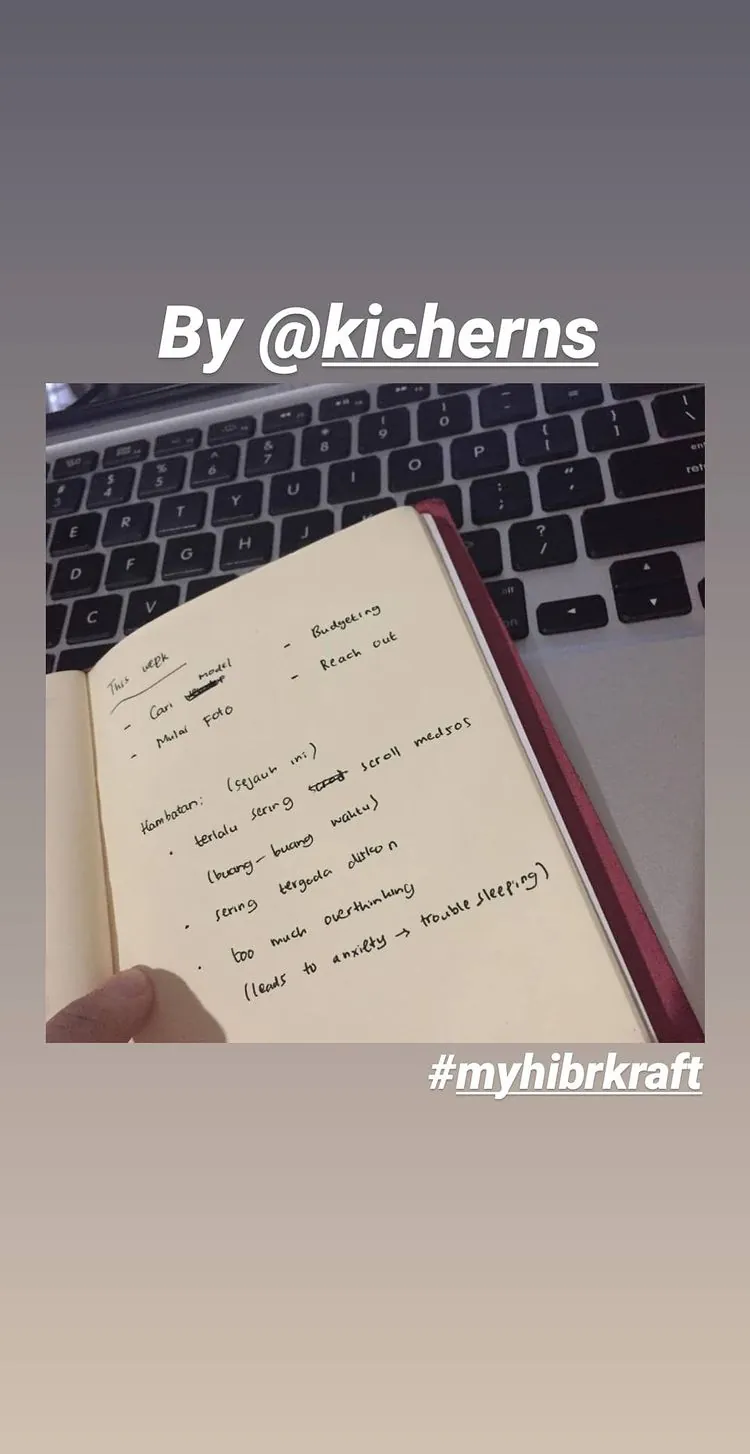 By @kicherns
This week
- Cari model
- Mulai Foto
- Budgeting
- Reach out
Hambatan: (sejauh ini)
• terlalu sering scroll medsos
(buang-buang waktu)
• sering tergoda diskon
• too much overthinking
(leads to anxiety → trouble sleeping)
#myhibrkraft
# 3
$ 4
% 5
^ 6
& 7
* 8
( 9
) 0
E R T Y U I O P
D F G H J
C V